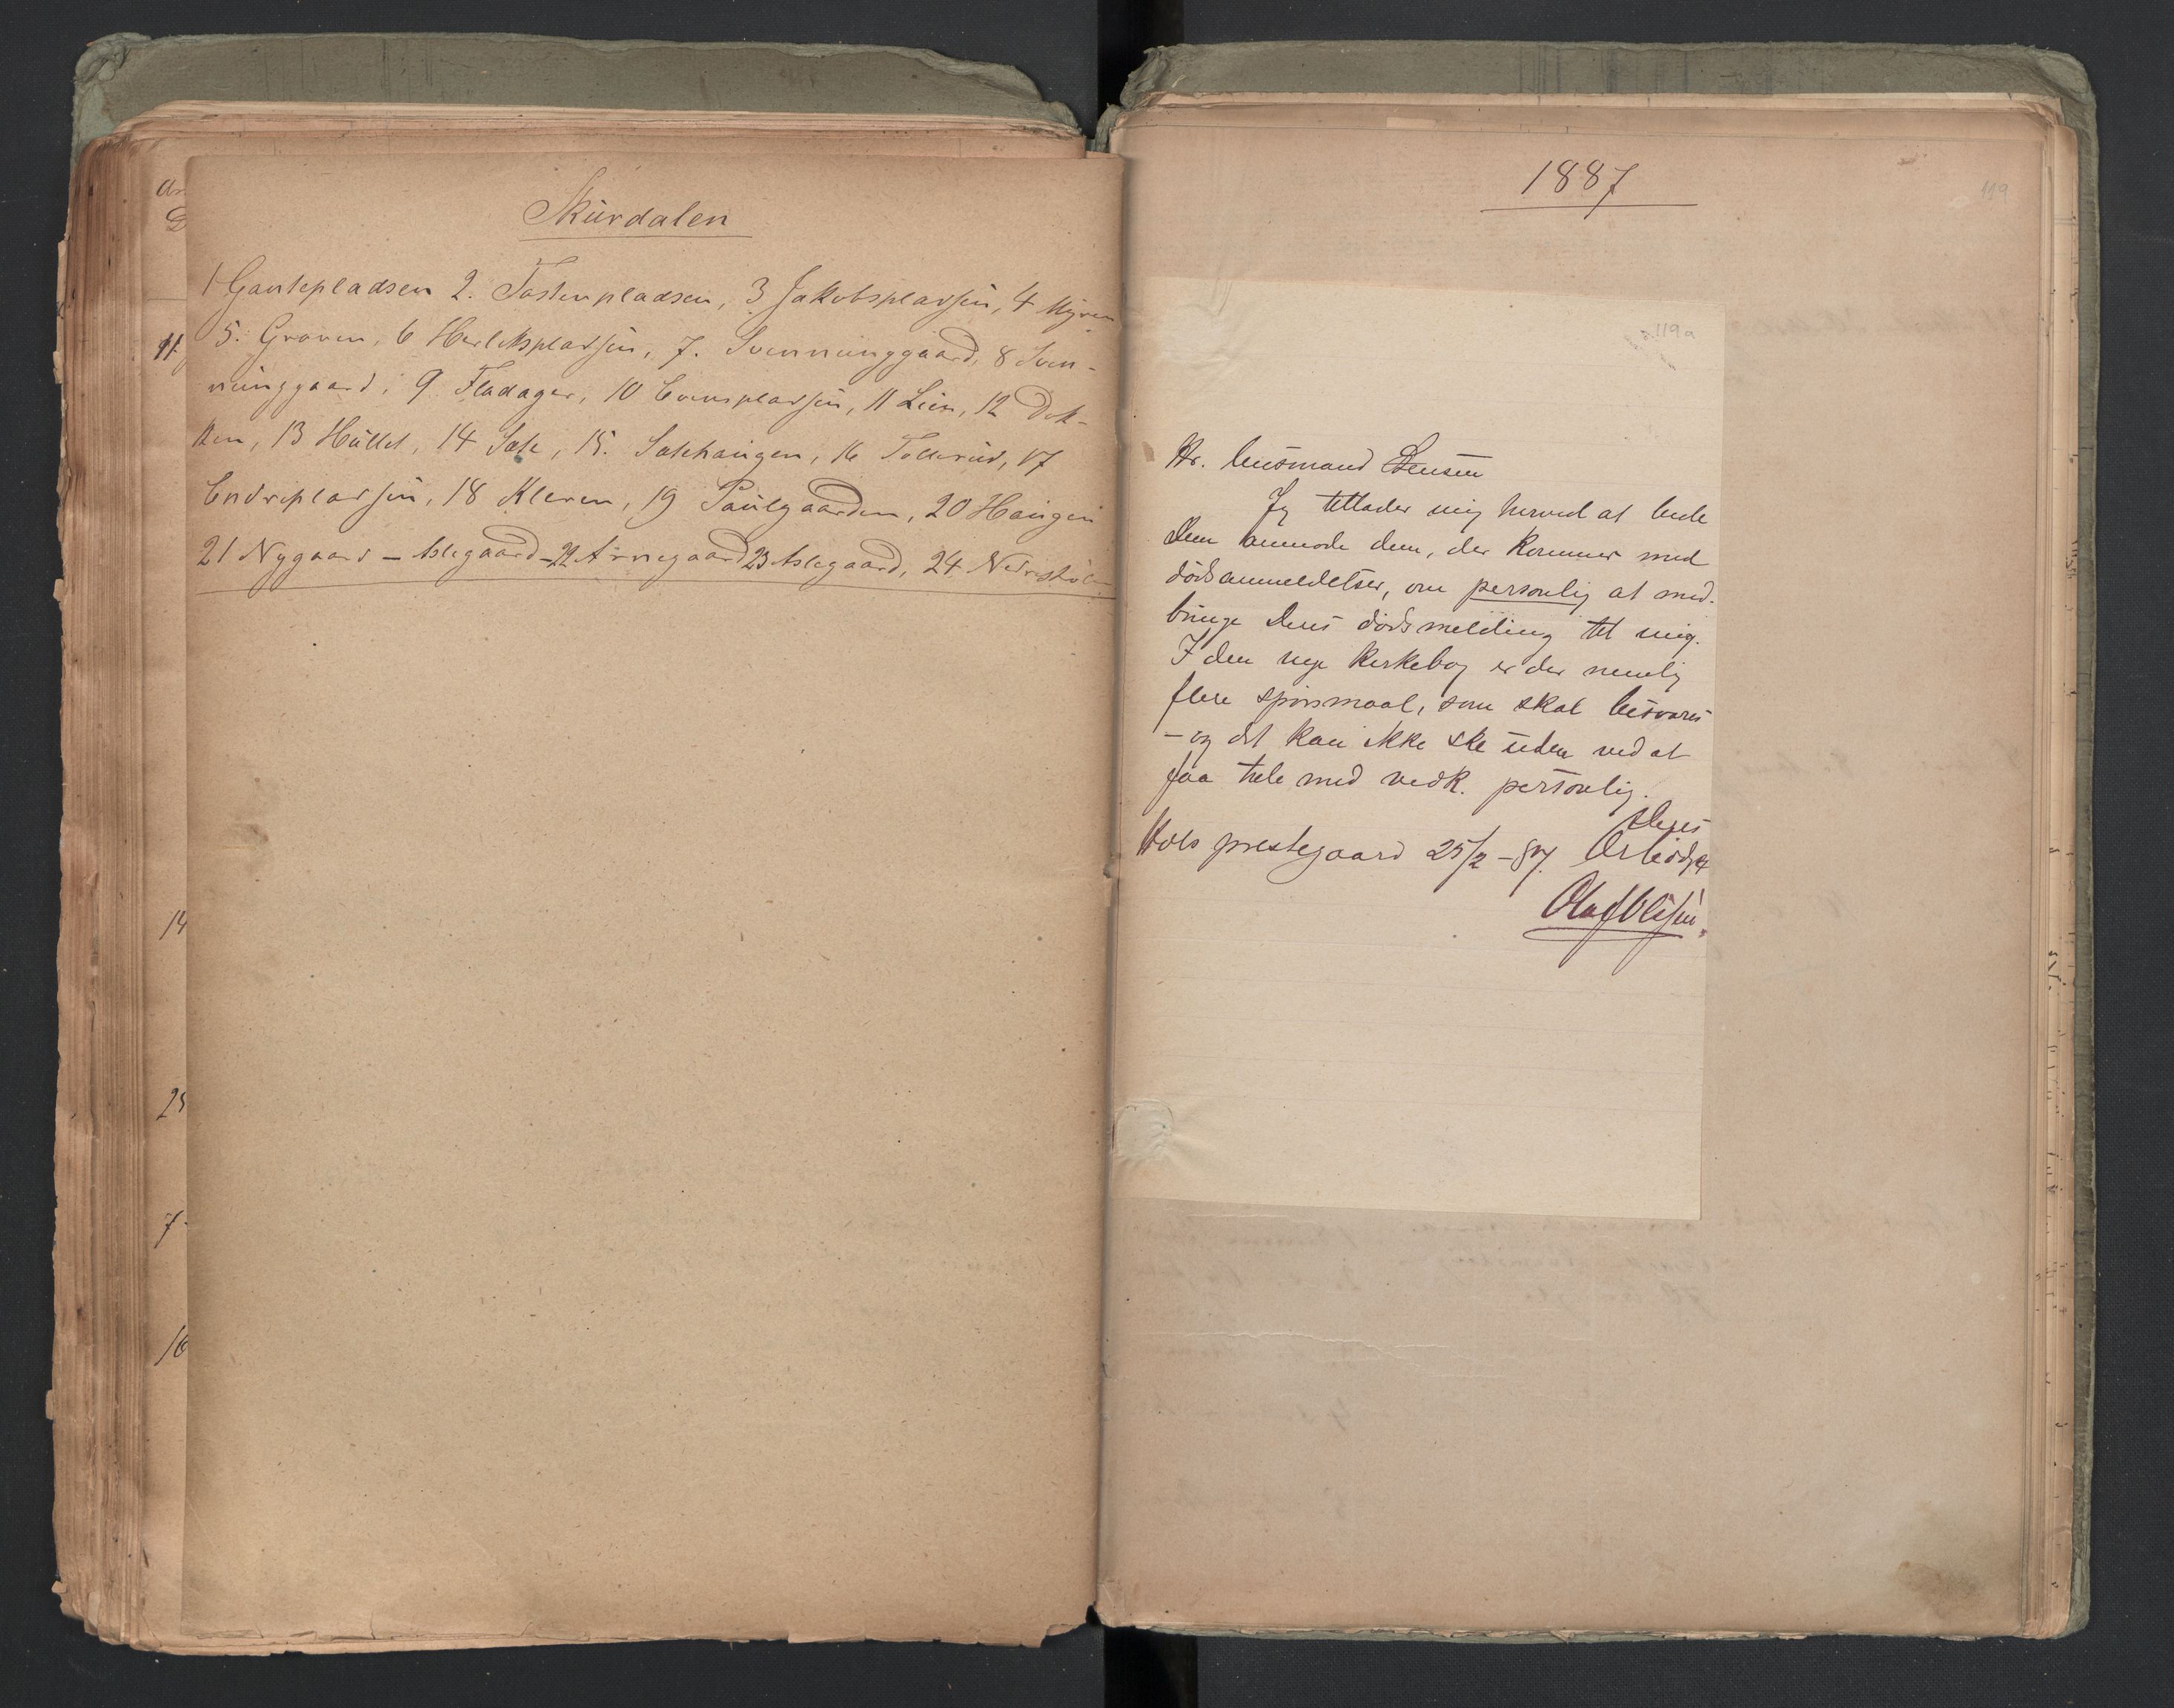 Skurdalen
1 Gantepladsen 2. Tostenpladsen, 3 Jakobspladsen, 4 Myren
5. Graven, 6 Herleikspladsen, 7. Svenninggaard, 8 Sven-
ninggaard, 9 Fladager, 10 Evenspladsen, 11 Lien, 12 Dok-
ken, 13 Hullet, 14 Sate, 15. Satehaugen, 16 Tollerud, 17
Endrepladsen, 18 Kleven, 19 Paulgaarden, 20 Haugen
21 Nygaard – Aslegaard – 22 Arnegaard 23 Aslegaard, 24
11
14
25
7
16
1887
119
119a
Hr. lensmand
Jeg tillader mig herved at bede
Dem anmode dem, der kommer med
dødsanmeldelser, om personlig at med-
bringe Deres dødsmelding til mig.
I den nye kirkebog er der nemlig
flere spørsmaal, som skal besvares
– og det kan ikke ske uden ved at
faa tale med vedk. personlig.
Deres
Hols prestegaard 25/2 – 87. Ærbødige
Olaf Olsen